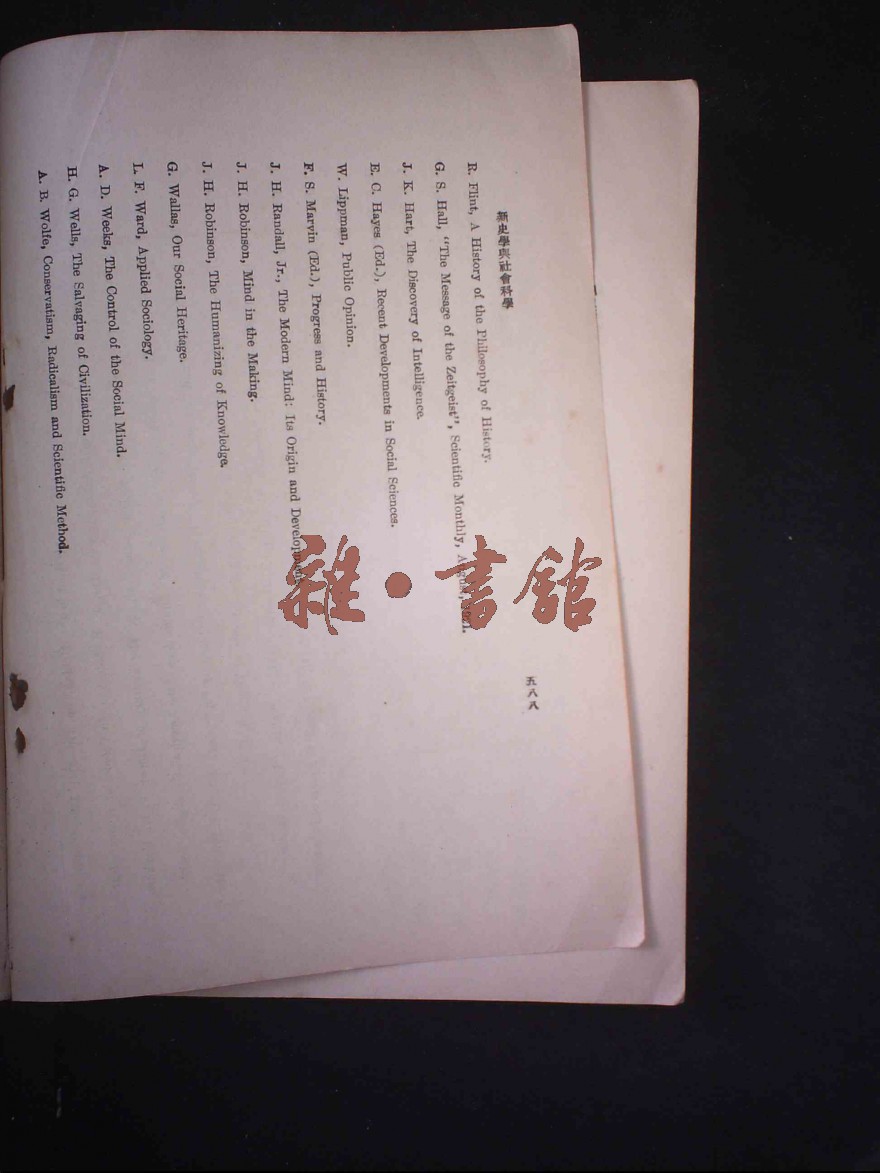 新史學與社會科學
五八八
R. Flint, A History of the Philosophy of History.
G. S. Hall, “The Message of the Zeitgeist”, Scientific Monthly, August, 1921.
J. K. Hart, The Discovery of Intelligence.
E. C. Hayes (Ed.), Recent Developments in Social Sciences.
W. Lippman, Public Opinion.
F. S. Marvin (Ed.), Progress and History.
J. H. Randall, Jr., The Modern Mind: Its Origin and Development.
J. H. Robinson, Mind in the Making.
J. H. Robinson, The Humanizing of Knowledge.
G. Wallas, Our Social Heritage.
L. F. Ward, Applied Sociology.
A. D. Weeks, The Control of the Social Mind.
H. G. Wells, The Salvaging of Civilization.
A. B. Wolfe, Conservatism, Radicalism and Scientific Method.
雜·書館